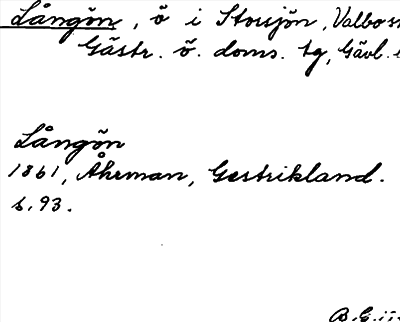 Långön, ö i Storsjön, Valbo s
Gästr. ö. doms. tg, Gävl. l
Långön
1861, Åhrman, Gestrikland.
s. 93.